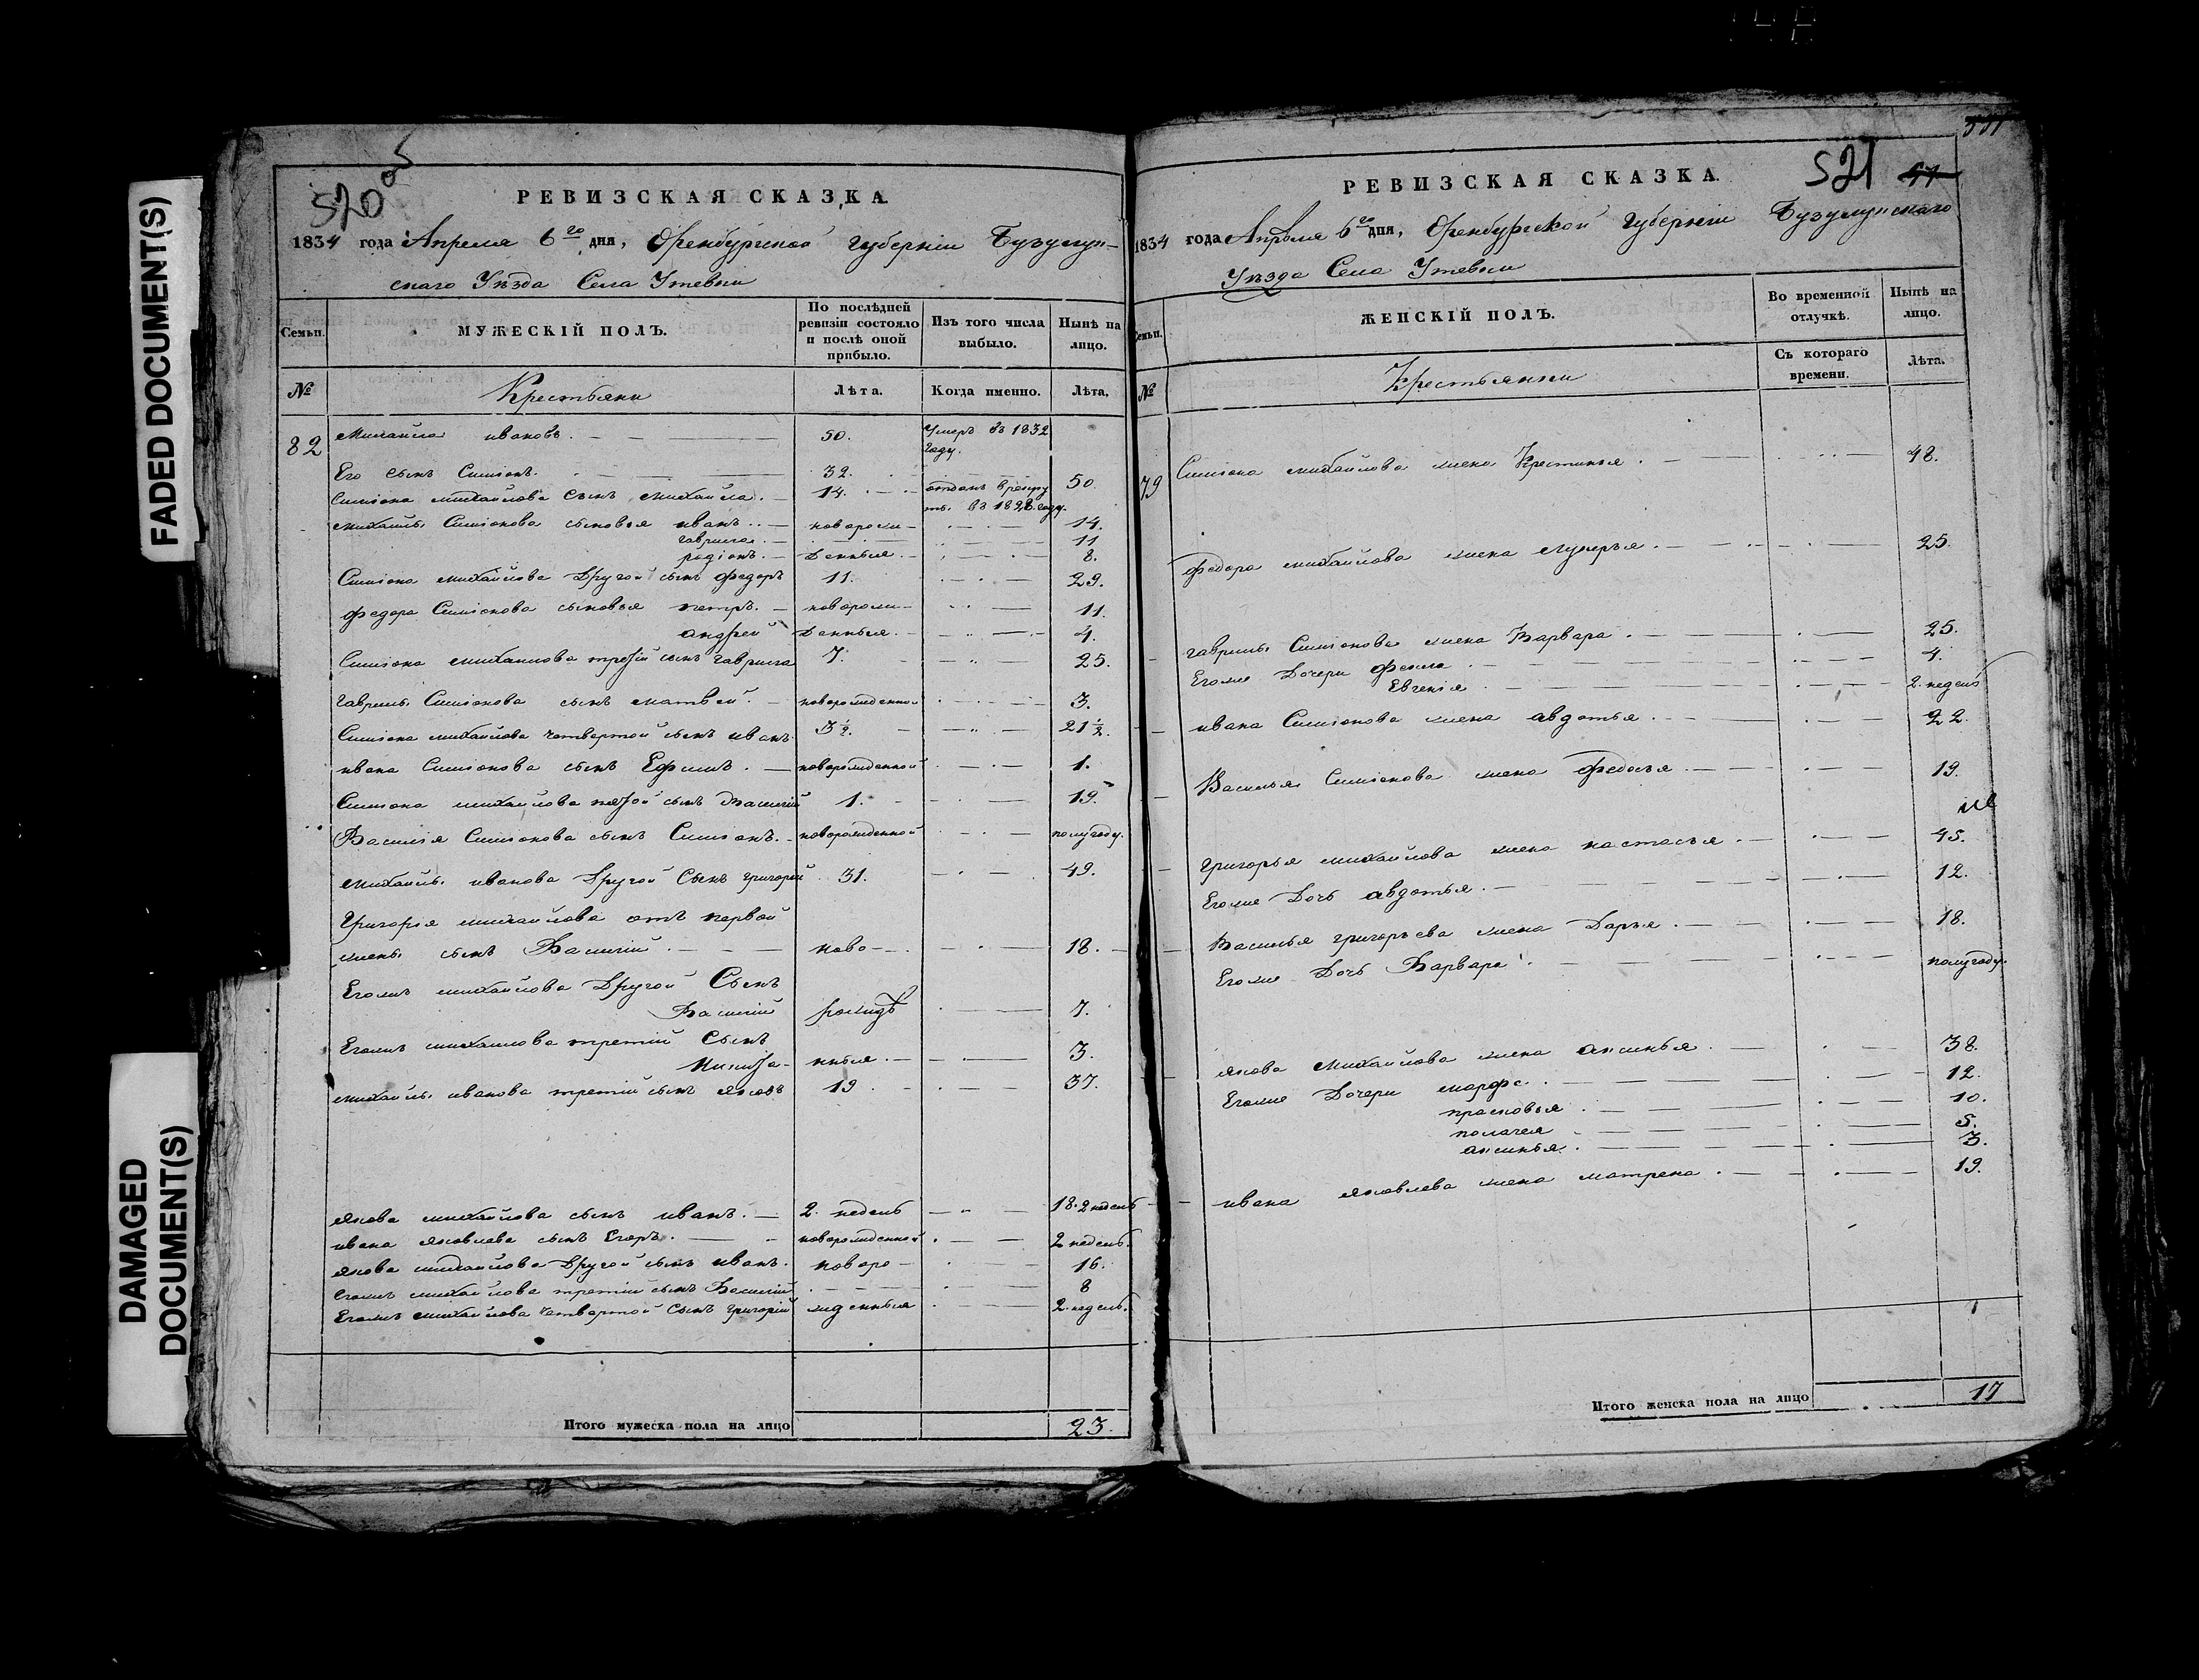 FADED DOCUMENT(S)
DAMAGED
DOCUMENT(S)
520 об
РЕВИЗСКАЯ СКАЗКА.
1834 года Апреля 6го дня, Оренбургской губернiи Бузулук-
скаго Уѣзда Села Утевки
Семьи. МУЖЕСКIЙ ПОЛЪ. По послѣдней ревизiи состояло и послѣ оной прибыло. Изъ того числа выбыло. Нынѣ на лицо.
№ Крестьяни Лѣта. Когда именно. Лѣта.
82 Михайла ивановъ. 50. Умеръ въ 1832 году.
Его сынъ Симiонъ. 32. 50
Симiона михайлова сынъ михайла. 14. отданъ в рекруты въ 182 году.
михайлы Симiонова сыновья иванъ новорож- 14.
гаврила. 11
родiонъ. денныя. 8.
Симiона михайлова Другой сынъ федоръ 11. 29.
федора Симiонова сыновья петръ. новорож- 11.
андрей денныя. 4.
Симiона михайлова третiй сынъ гаврила 7. 25.
гаврилы Симiонова сынъ матвей. новорожденной 3.
Симiона михайлова четвертой сынъ иванъ 3 1/2. 21 1/2.
ивана Симiонова сынъ Ефимъ. новорожденной 1.
Симiона михайлова пятой сынъ Василiй 1. 19.
Василiя Симiонова сынъ Симiонъ. новорожденной полугоду.
михайлы иванова Другой Сынъ григорiй 31. 49.
Григорiя михайлова отъ первой
жены сынъ Василiй ново- 18.
Егожъ михайлова Другой Сынъ
Василiй рожд 7.
Егожъ михайлова третiй Сынъ
Никита- нныя. 3.
михайлы иванова третiй сынъ яковъ 19. 37.
якова михайлова сынъ иванъ. 2. недель 18. 2 недель
ивана яковлева сынъ Егоръ. новорожденной 2 недель.
якова михайлова Другой сынъ иванъ. новоро- 16.
Егожъ михайлова третiй сынъ Василiй 8
Егожъ михайлова четвертой Сынъ григорiй жденныя 2. недель.
Итого мужеска пола на лицо 23.
521
РЕВИЗСКАЯ СКАЗКА.
1834 года Апрѣля 6го дня, Оренбургской губернiи Бузулукскаго
Уѣзда Села Утевки
Семьи. ЖЕНСКIЙ ПОЛЪ. Во временной отлучкѣ. Нынѣ на лицо.
№ Крестьянки Съ котораго времени. Лѣта.
79 Симiона михайлова жена Крестинья. 48.
федора михайлова жена лукерья. 25.
гаврилы Симiонова жена Варвара. 25.
Егоже Дочери фекла 4.
Евгенiя. 2. недель
ивана Симiонова жена авдотья. 22.
Василья Симiонова жена федосья 19.
Григорья михайлова жена настасья. 45.
Егоже Дочь авдотья. 12.
Василья григорьева жена Дарья. 18.
Егоже Дочь Варвара. полугоду.
якова Михайлова жена аксинья. 38.
Егоже Дочери марфа. 12.
прасковья. 10.
полагея 5.
аксинья. 3.
ивана яковлева жена матрена. 19.
Итого женска пола на лицо 17